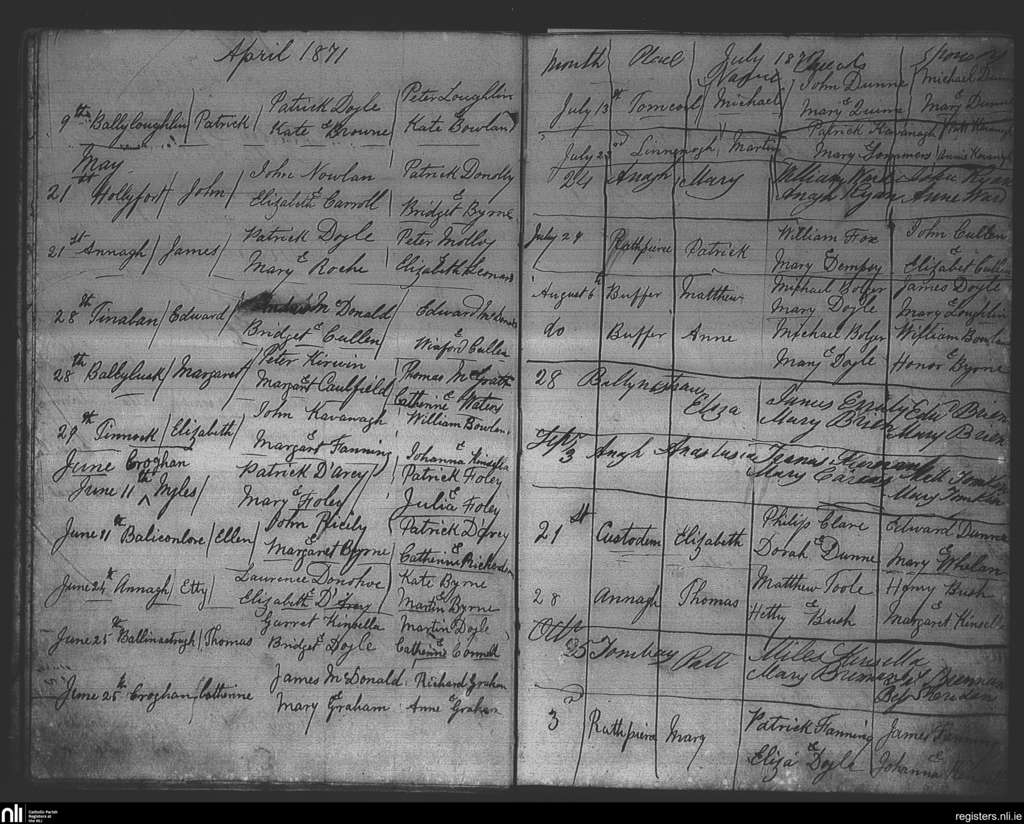 April 1871
9th Ballyloughlin / Patrick / Patrick Doyle / Peter Loughlin
Kate & Browne / Kate & Bowland
May
21st Hollyfort / John / John Nowlan / Patrick Donolly
Elizabeth & Carroll / Bridget & Byrne
21st Annagh / James / Patrick Doyle / Peter Molloy
Mary & Roche / Elizabeth Leonard
28th Tinalan / Edward / McDonald / Edward McDonald
Bridget & Cullen / Winford & Cullen
28th Ballylusk / Margaret / Peter Kirwin / Thomas McGrath
Margaret & Caulfield / Catherine & Waters
29th Pinnock / Elizabeth / John Kavanagh / William Bowlan
Margaret & Fanning / Johanna & Kinsella
June Croghan
June 11th Myles / Patrick D'arcy / Patrick Foley
Mary & Foley / Julia & Foley
June 11th Baliconlore / Ellen / John Hicily / Patrick D'arcy
Margaret Byrne / Catherine & Richardson
June 24th Annagh / Etty / Laurence Donohoe / Kate Byrne
Elizabeth & D'Arcy / Martin Byrne
June 25th / Thomas / Garret Kinsella / Martin Doyle
Bridget & Doyle / Catherine & Connell
June 25th Croghan / Catherine / James McDonald / Richard Graham
Mary & Graham / Anne & Graham
Month Place July 1871 Name Parents Sponsors
July 13th Tomcoil Michael John Dunne Michael Dunne
Mary & Quinn Mary & Dunne
July 23rd Linnenagh Martin Patrick Kavanagh Patt Kavanagh
Mary & Sommors Annie Kavanagh
24 Anagh Mary William Ward Ryan
Anagh Ryan Anne Ward
July 24 Rathpiere Patrick William Fox John Cullen
Mary & Dempsy Elizabet & Cullen
August 6th Buffer Matthew Michael Bolger James Doyle
Mary Doyle Mary & Loughlin
do Buffer Anne Michael Bolger William Bowlan
Mary & Doyle Honor & Byrne
28 Eliza James Edwd Brien
Mary Brien Mary Brien
Sept 3 Angh Anastasia
Mary Mary Tomkin
21st Custodum Elizabeth Philip Clare Edward Dunne
Dorah & Dunne Mary & Whelan
28 Annagh Thomas Matthew Toole Henry Bush
Hetty & Bush Margaret & Kinsella
Octr
25 Tombay Patt Miles Kinsella Brennan
Mary
3d Rathpiera Mary Patrick Fanning James Fanning
Eliza & Doyle Johanna &
nli Catholic Parish
Registers at
the NLI
registers.nli.ie